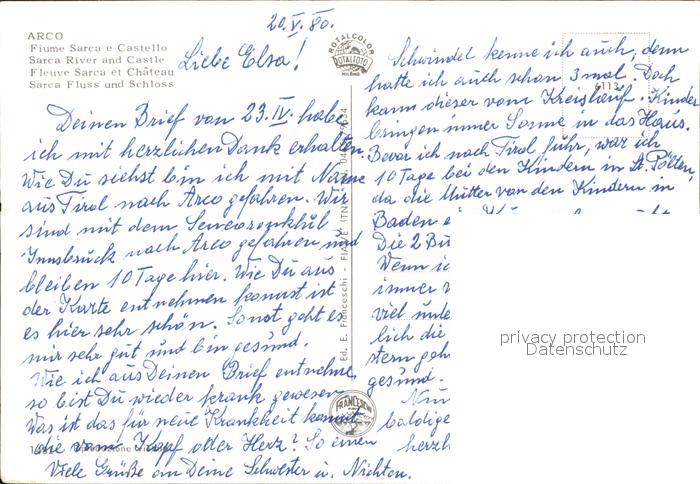 20.V.80.
ARCO
Fiume Sarca e Castello
Sarca River and Castle
Fleuve Sarca et Château
Sarca Fluss und Schloss
Liebe Elsa!
ROTALCOLOR
ROTALFOTO
MILANO
Deinen Brief von 23.IV. habe
ich mit herzlichen Dank erhalten.
Wie Du siehst bin ich mit
aus Tirol nach Arco gefahren. Wir
sind mit dem
Innsbruck nach Arco gefahren und
bleiben 10 Tage hier. Wie Du aus
der Karte entnehmen kannst ist
es hier sehr schön. Sonst geht es
mir sehr gut und bin gesund.
Wie ich aus Deinen Brief entnehme
so bist Du wieder krank gewesen
Was ist das für neue Krankheit kommt
die vom Kopf oder Herz? So einen
Viele Grüße an Deine Schwester u. Nichten.
Ed. E. Franceschi - FIAVÈ (TN)
FRANCESCHI
Schwindel kenne ich auch, denn
hatte ich auch schon 3 mal. Doch
kann dieser vom Kreislauf. Kinder
bringen immer Sonne in das Haus.
Bevor ich nach Tirol fuhr, war ich
10 Tage bei den Kindern in St. Pölten,
da die Mutter von den Kindern in
Baden
Die 2
Wenn
immer
viel
lich die
stern
gesund
Nun
baldige
privacy protection
Datenschutz